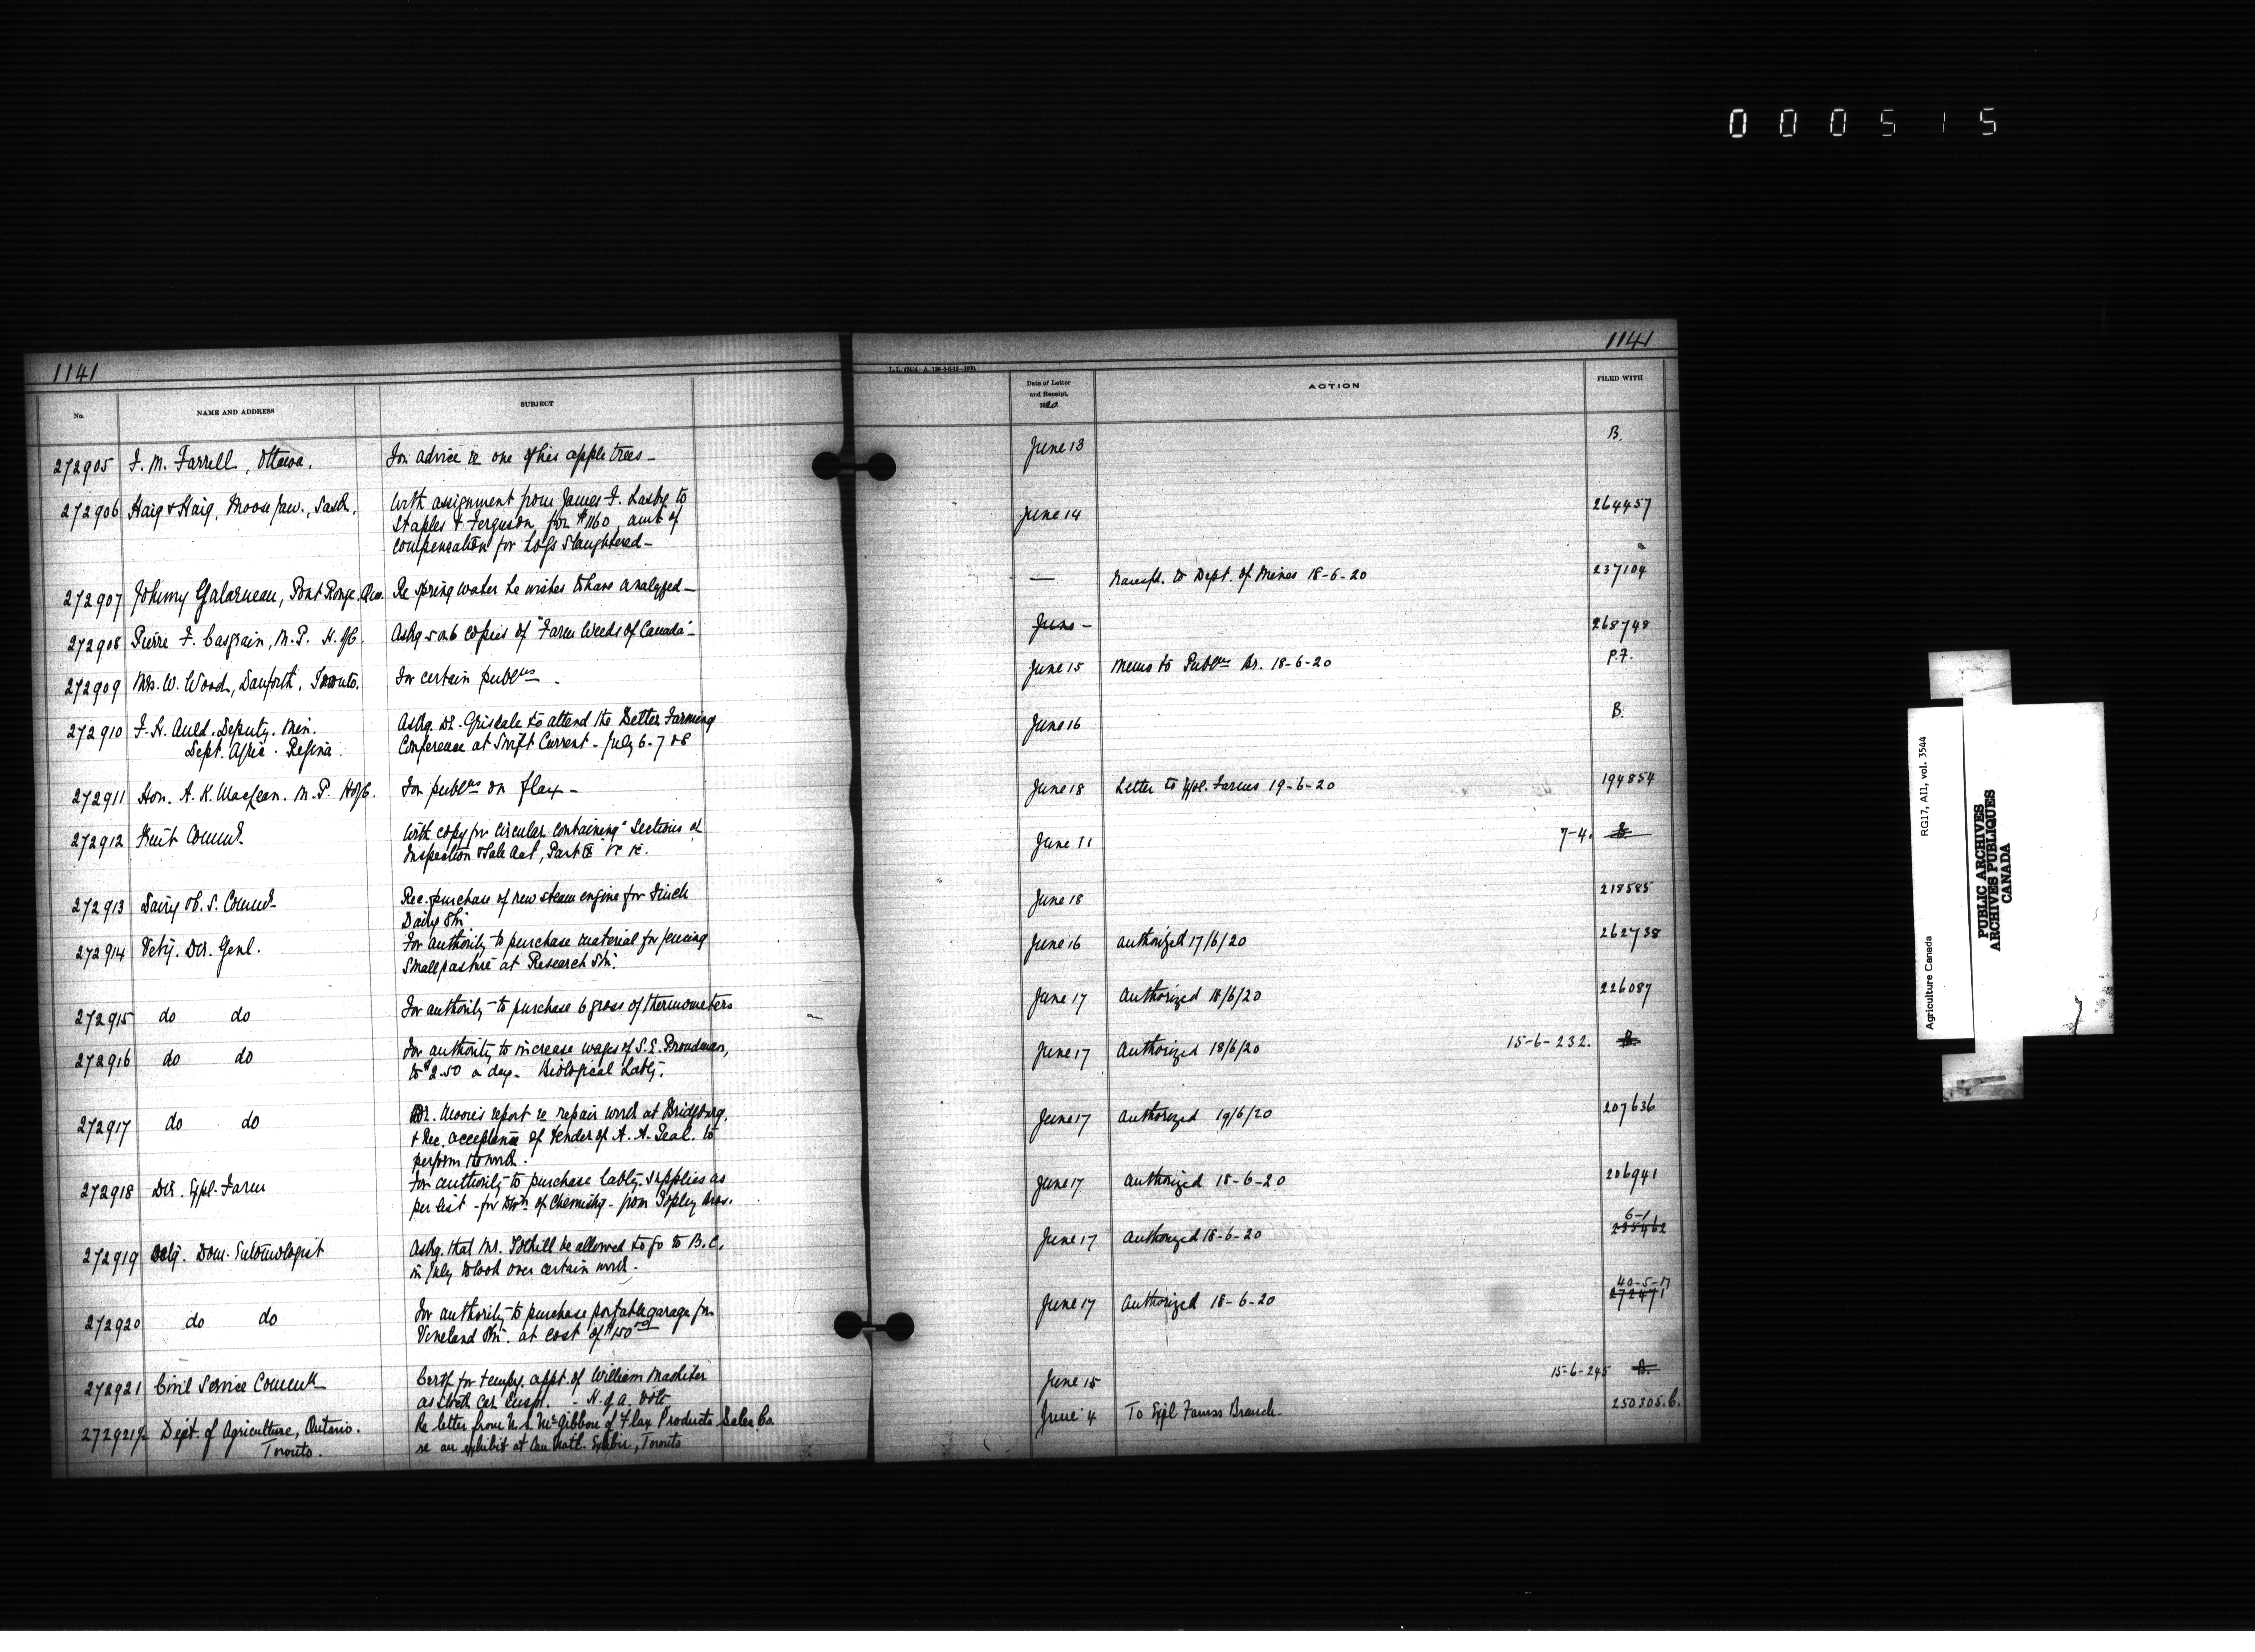 000515
1141
1141
No.
NAME AND ADDRESS
SUBJECT
L.L. 62434—A. 128-5-6-18—1000.
Date of Letter and Receipt, 1920
ACTION
FILED WITH
272905 F. M. Farrell, Ottawa. For advice re one of his apple trees— June 13 B.
272906 Haig & Haig, Moose Jaw, Sask. With assignment from James F. Lasby to June 14 264457
Staples & Ferguson for $1160, amt of
compensation for hogs slaughtered—
272907 Johnny Galarneau, Pont Rouge, Que. Re spring water he wishes to have analyzed— — Transfd. to Dept. of Mines 18-6-20 237104
272908 Pierre F. Casgrain, M.P. H. of C. Askg 5 or 6 copies of "Farm Weeds of Canada"— June - 268748
272909 Mrs. W. Wood, Danforth, Toronto. For certain publns. June 15 Memo to Publns Br. 18-6-20 P.F.
272910 F. H. Auld, Deputy. Min. Askg. Dr. Grisdale to attend the Better Farming June 16 B.
Dept. Agric. Regina. Conference at Swift Current - July 6-7 & 8
272911 Hon. A. K. Maclean. M.P. H of C. For publns on flax— June 18 Letter to Expl. Farms 19-6-20 194854
272912 Fruit Commr. With copy for circular containing "Sections of June 11 7-4. B.
Inspection & Sale Act, Part IX
272913 Dairy & C. S. Commr. Rec. purchase of new steam engine for Finch June 18 218585
Dairy Stn.
272914 Vety. Dir. Genl. For authority to purchase material for fencing June 16 Authorized 17/6/20 262738
small pasture at Research Stn.
272915 do do For authority to purchase 6 gross of thermometers June 17 Authorized 18/6/20 226087
272916 do do For authority to increase wages of S. E. Proudman, June 17 Authorized 18/6/20 15-6-232. B.
to $2.50 a day. Biological Laby.
272917 do do Dr. Moore's report re repair work at Bridgburg, June 17 Authorized 19/6/20 207636
& Rec. acceptance of tender of A. A. Teal. to
perform the work.
272918 Dir. Expl. Farm For authority to purchase laby. supplies as June 17 Authorized 18-6-20 206941
per list - for Divn of Chemistry - from Topley Bros.
272919 Actg. Dom. Entomologist Askg. that Mr. Tothill be allowed to go to B.C. June 17 Authorized 18-6-20 6-1
in July to look over certain work.
272920 do do For authority to purchase portable garage for June 17 Authorized 18-6-20 40-5-17 272471
Vineland Stn. at cost of $150
272921 Civil Service Commn Certf for tempy. appt. of William Mashiter June 15 15-6-245 B.
as Stock Car Insp. - H. of A.
272921½ Dept. of Agriculture, Ontario. Re letter from McGibbon of Flax Products Sales Co. June 4 To Expl Farms Branch 250305.C.
Toronto. re an exhibit at Can Natl. Exhbn, Toronto
Agriculture Canada RG17, AII, vol. 3544
PUBLIC ARCHIVES
ARCHIVES PUBLIQUES
CANADA